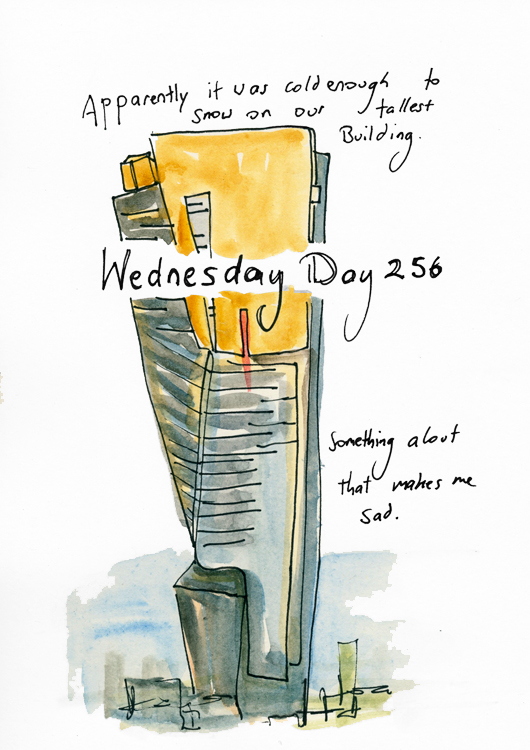 Apparently it was cold enough to
snow on our tallest
Building.
Wednesday Day 256
Something about
that makes me
sad.